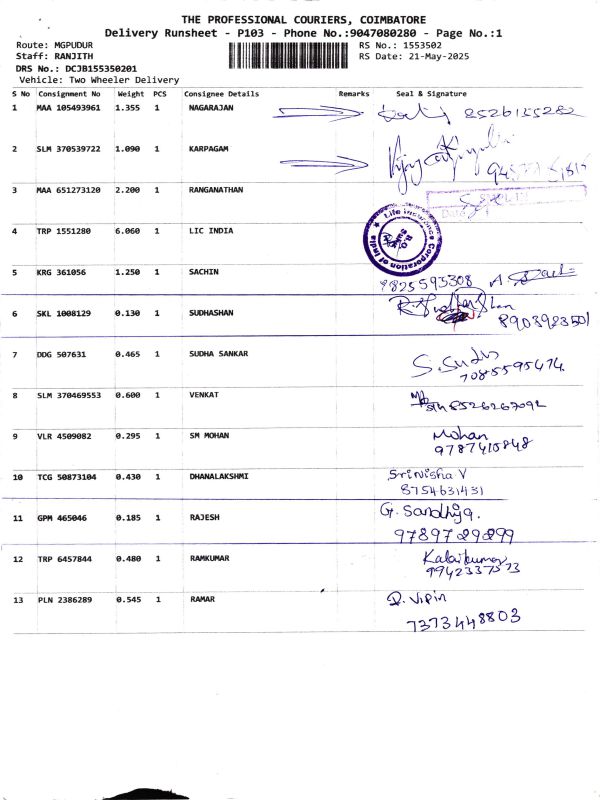 THE PROFESSIONAL COURIERS, COIMBATORE
Delivery Runsheet - P103 - Phone No.:9047080280 - Page No.:1
Route: MGPUDUR RS No.: 1553502
Staff: RANJITH RS Date: 21-May-2025
DRS No.: DCJB155350201
Vehicle: Two Wheeler Delivery
S No Consignment No Weight PCS Consignee Details Remarks Seal & Signature
1 MAA 105493961 1.355 1 NAGARAJAN 8526155282
2 SLM 370539722 1.090 1 KARPAGAM
3 MAA 651273120 2.200 1 RANGANATHAN
4 TRP 1551280 6.060 1 LIC INDIA Life Insurance Corporation of India
5 KRG 361056 1.250 1 SACHIN
9825593308
6 SKL 1008129 0.130 1 SUDHASHAN
8903923501
7 DDG 507631 0.465 1 SUDHA SANKAR S.Sudha
7085595474
8 SLM 370469553 0.600 1 VENKAT 8526267092
9 VLR 4509082 0.295 1 SM MOHAN Mohan
9787410848
10 TCG 50873104 0.430 1 DHANALAKSHMI Srinisha V
8754631431
11 GPM 465046 0.185 1 RAJESH G. Sandhiya.
9789729899
12 TRP 6457844 0.480 1 RAMKUMAR Kalaikumar
9942337573
13 PLN 2386289 0.545 1 RAMAR D. Vipin
7373448803